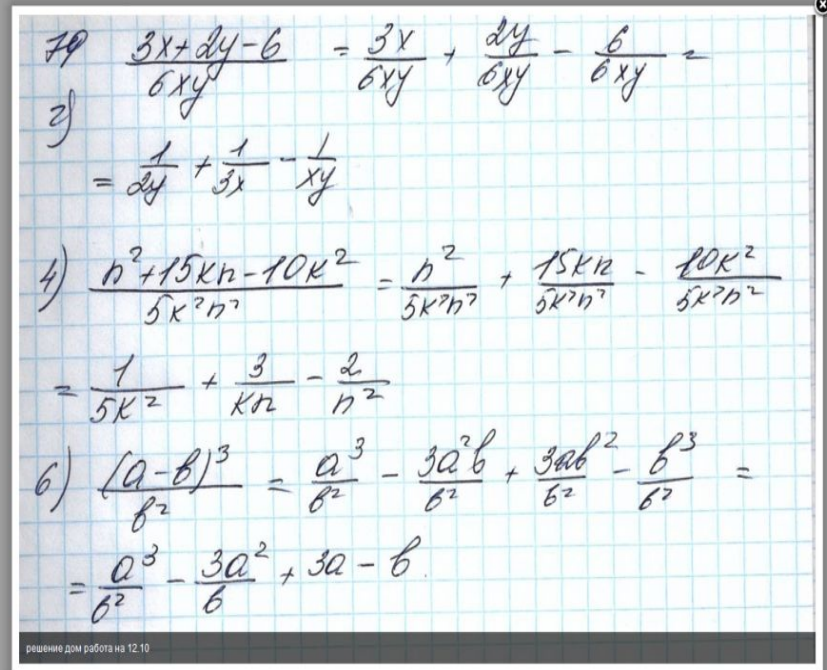 79 (3x+2y-6)/(6xy) = 3x/(6xy) + 2y/(6xy) - 6/(6xy) =
2)
= 1/(2y) + 1/(3x) - 1/(xy)
4) (n²+15кn-10к²)/(5к²n²) = n²/(5к²n²) + 15кn/(5к²n²) - 10к²/(5к²n²)
= 1/(5к²) + 3/(кn) - 2/n²
6) (a-в)³/в² = a³/в² - 3a²в/в² + 3aв²/в² - в³/в² =
= a³/в² - 3a²/в + 3a - в.
решение дом работа на 12.10